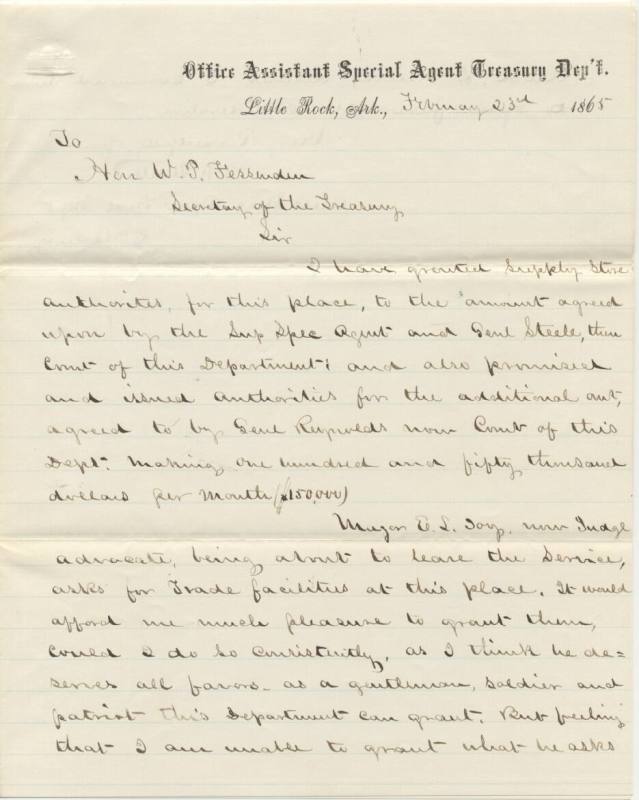 Office Assistant Special Agent Treasury Dep't.
Little Rock, Ark., February 23rd 1865
To
Hon W. P. Fessenden
Secretary of the Treasury
Sir
I have granted Supply Store
authorites, for this place, to the amount agreed
upon by the Sup Spec Agent and Genl Steele, then
Comt of this Department; and also promised
and issued authorities for the additional amt,
agreed to by Genl Reynolds now Comt of this
Dept. Making one hundred and fifty thousand
dollars per month ($150,000)
Major E. L. now Judge
advocate, being about to leave the Service,
asks for Trade facilities at this place. It would
afford me much pleasure to grant them,
could I do so consistently, as I think he de=
serves all favors as a gentleman, soldier and
patriot this Department can grant. But feeling
that I am unable to grant what he asks